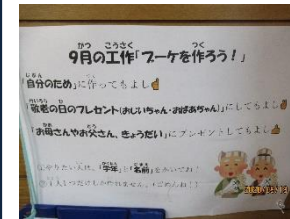 9月の工作「ブーケを作ろう！」
「自分のため」に作ってもよし👍
「敬老の日のプレゼント（おじいちゃん・おばあちゃん）」にしてもよし👍
「お母さんやお父さん、きょうだい」にプレゼントしてもよし👍
①作りたい人は、「学年」と「名前」をかいてね！